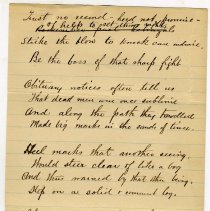 Just no second-hand not promise
of helps to
Strike the blow to knock care undone.
Be the boss of that sharp fight
Obituary notices often tell us
That dead men were once sublime
And along the path they travelled
Made big marks in the sands of time.
Heel marks that another seeing,
Would steer clear of like a bog
And thus warned by that thing,
Step on a solid + cement log.